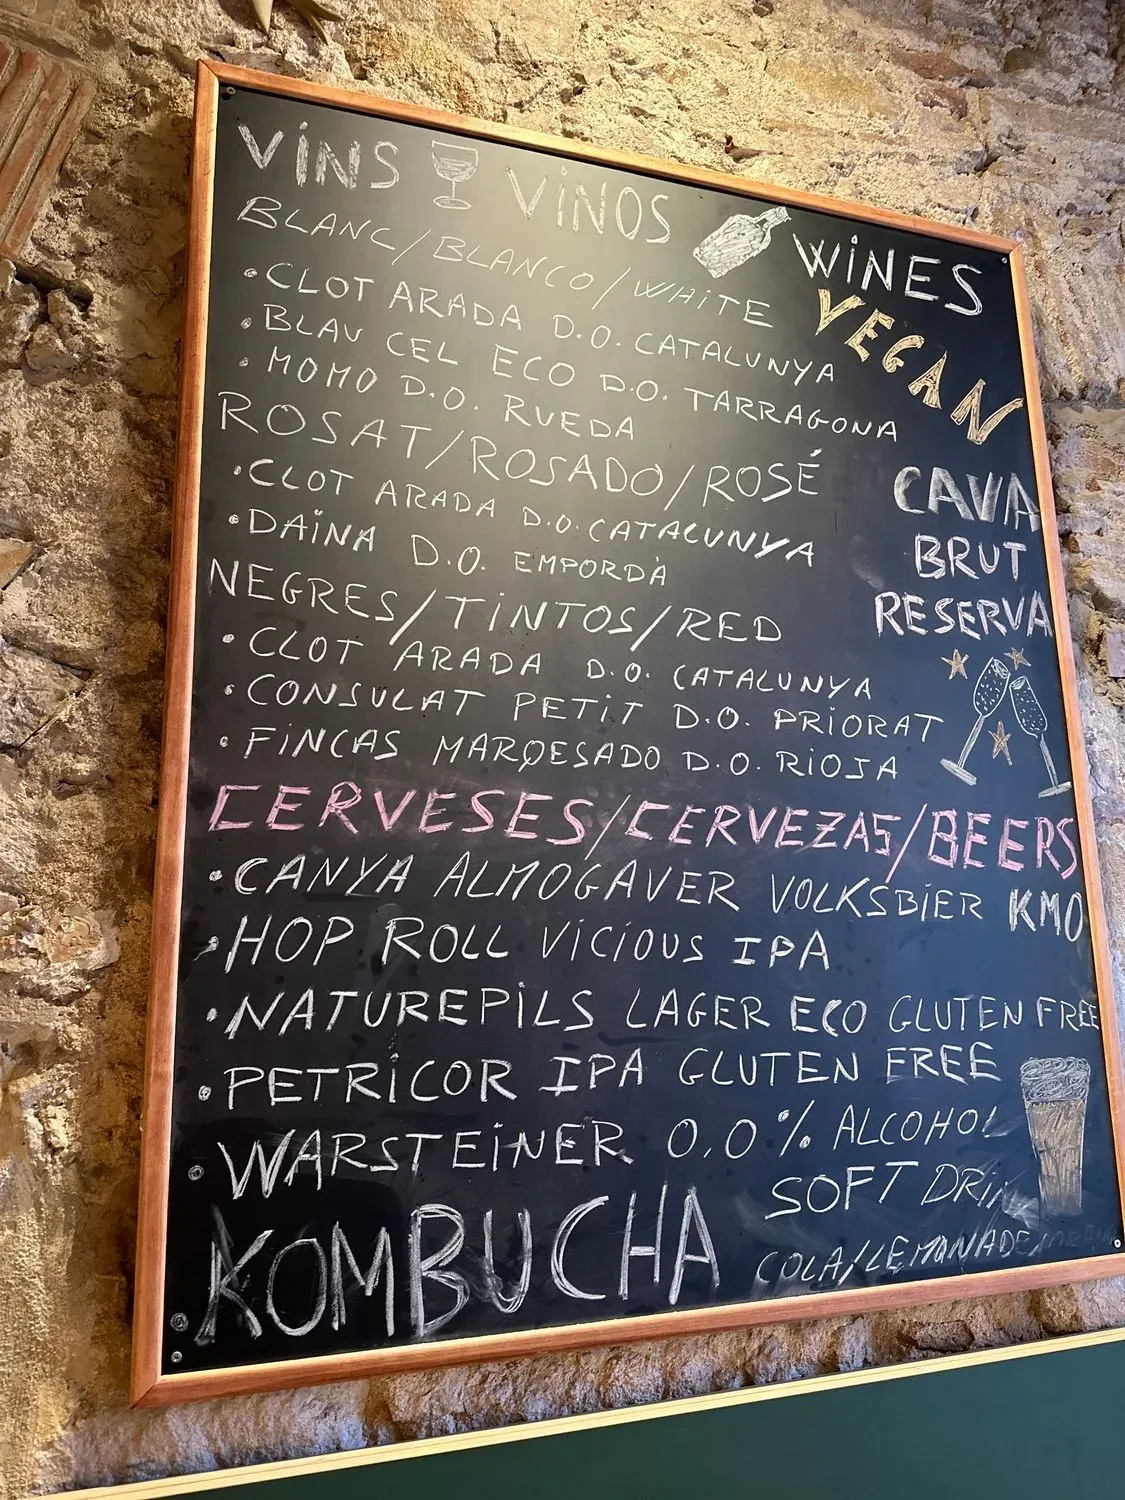 VINS VINOS WINES
VEGAN
BLANC/BLANCO/WHITE
• CLOT ARADA D.O. CATALUNYA
• BLAU CEL ECO D.O. TARRAGONA
• MOMO D.O. RUEDA
ROSAT/ROSADO/ROSÉ
• CLOT ARADA D.O. CATALUNYA
• DAÏNA D.O. EMPORDÀ
CAVA
BRUT
RESERVA
NEGRES/TINTOS/RED
• CLOT ARADA D.O. CATALUNYA
• CONSULAT PETIT D.O. PRIORAT
• FINCAS MARQESADO D.O. RIOJA
CERVESES/CERVEZAS/BEERS
• CANYA ALMOGAVER VOLKSBIER KM0
• HOP ROLL VICIOUS IPA
• NATUREPILS LAGER ECO GLUTEN FREE
• PETRICOR IPA GLUTEN FREE
• WARSTEINER 0,0% ALCOHOL
• KOMBUCHA
SOFT
COLA/LEMONADE